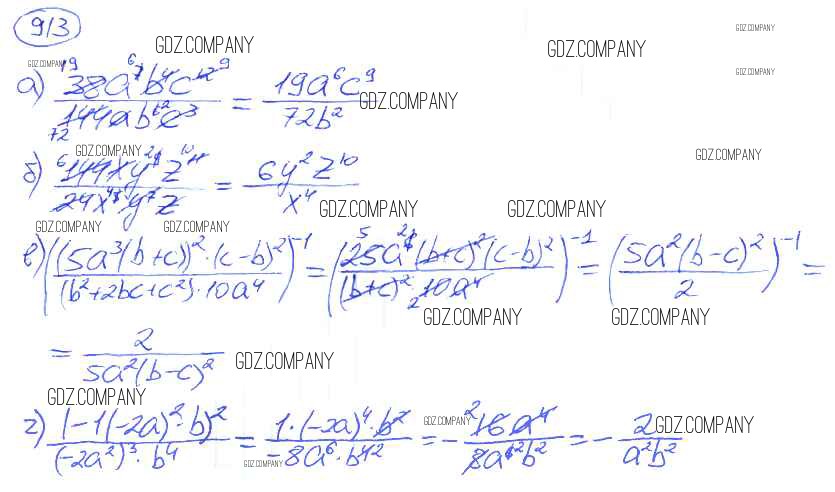 913
GDZ.COMPANY GDZ.COMPANY GDZ.COMPANY
GDZ.COMPANY GDZ.COMPANY
а) 38a⁷b⁴c¹² / 144ab⁶c³ = 19a⁶c⁹ / 72b² GDZ.COMPANY
GDZ.COMPANY GDZ.COMPANY
б) 144xy⁹z¹¹ / 24x⁵y⁷z = 6y²z¹⁰ / x⁴ GDZ.COMPANY GDZ.COMPANY
GDZ.COMPANY GDZ.COMPANY
в) ((5a³(b+c))²·(c-b)² / (b²+2bc+c²)·10a⁴)⁻¹ = (25a⁶(b+c)²(c-b)² / (b+c)²·10a⁴)⁻¹ = (5a²(b-c)² / 2)⁻¹ =
GDZ.COMPANY GDZ.COMPANY
= 2 / 5a²(b-c)² GDZ.COMPANY
GDZ.COMPANY
г) (-1(-2a)²·b)² / (-2a²)³·b⁴ = 1·(-2a)⁴·b² / -8a⁶·b⁴ = - 16a⁴ / 8a⁶b² = - 2 / a²b² GDZ.COMPANY
GDZ.COMPANY GDZ.COMPANY